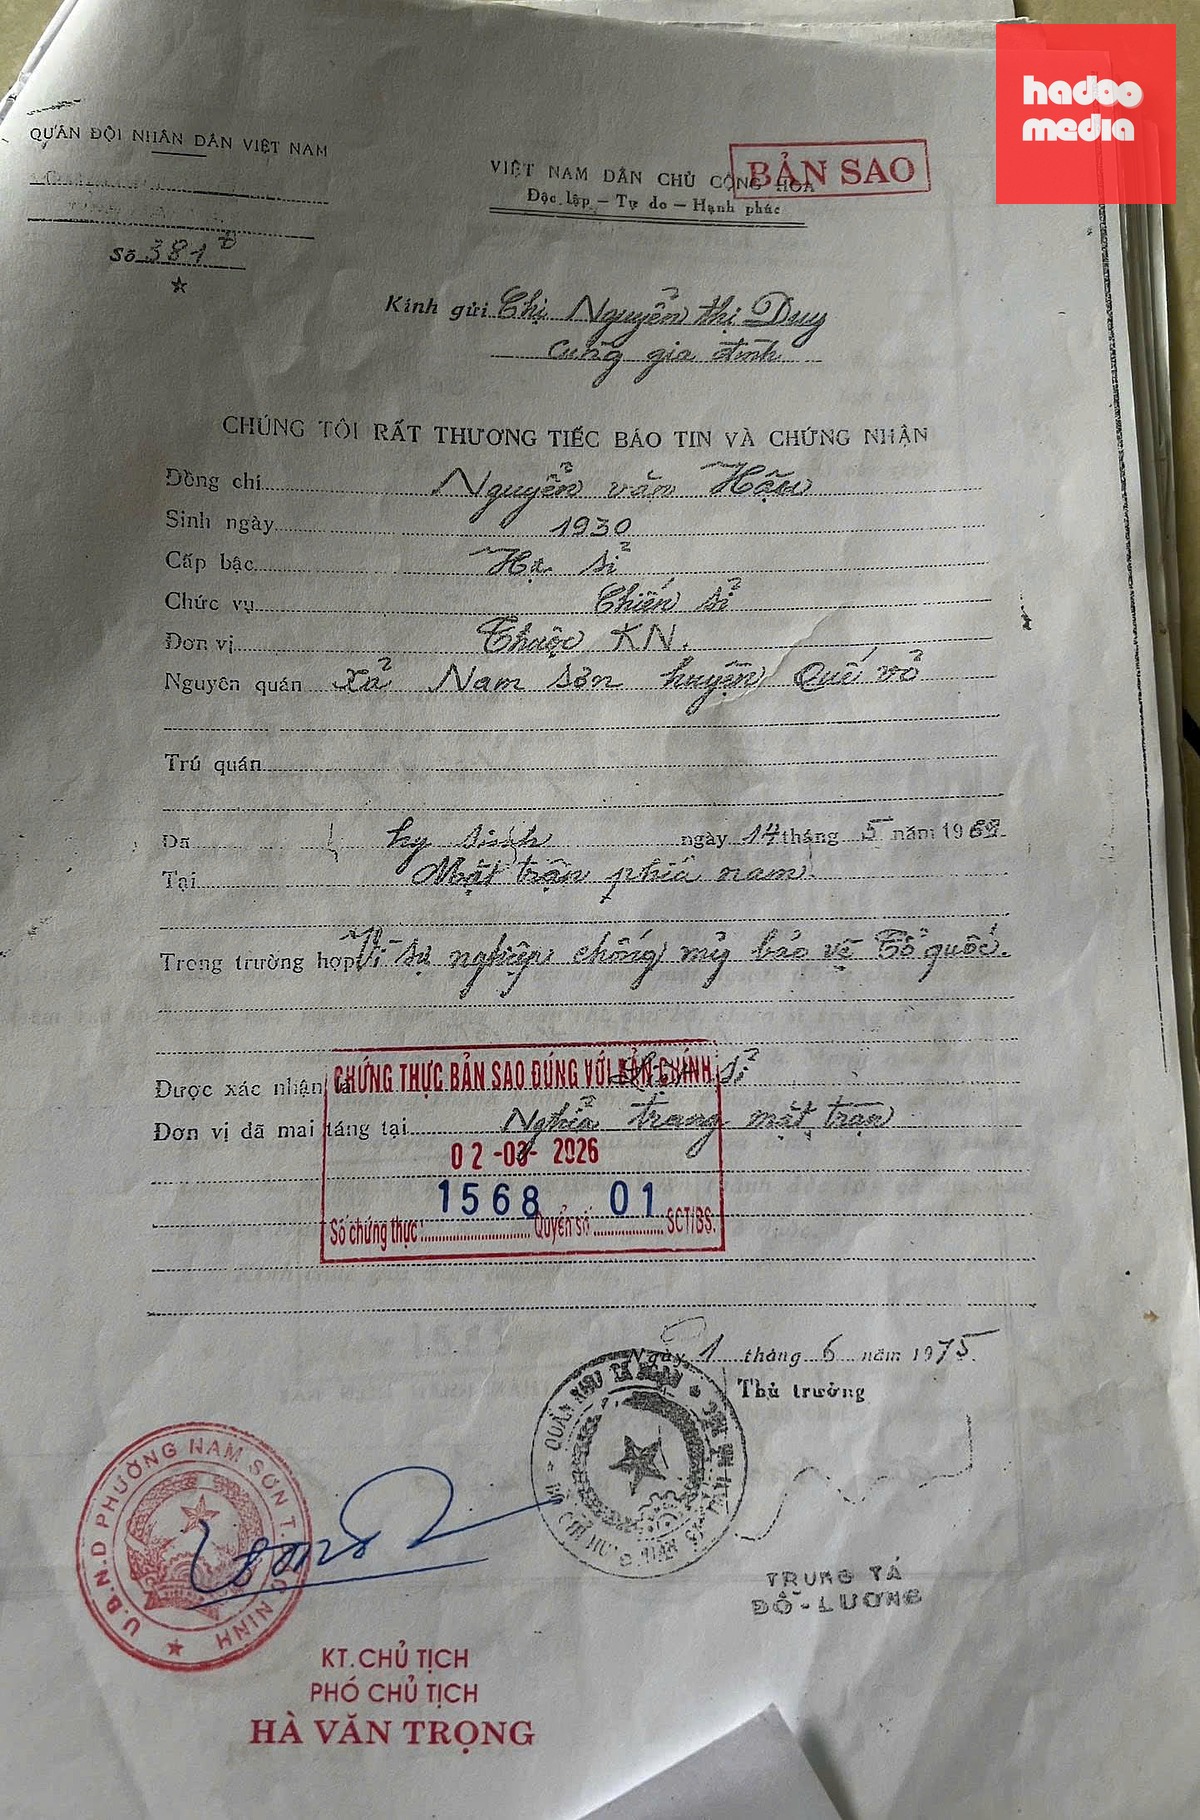 hadoo
media
QUÂN ĐỘI NHÂN DÂN VIỆT NAM
VIỆT NAM DÂN CHỦ CỘNG HOA
BẢN SAO
Độc lập - Tự do - Hạnh phúc
Số 381
Kính gửi Chị Nguyễn thị Duy
cùng gia đình
CHÚNG TÔI RẤT THƯƠNG TIẾC BÁO TIN VÀ CHỨNG NHẬN
Đồng chí Nguyễn văn Hậu
Sinh ngày 1930
Cấp bậc Hạ sĩ
Chức vụ Chiến sĩ
Đơn vị Thuộc KN.
Nguyên quán xã Nam Sơn huyện Quế võ
Trú quán
Đã hy sinh ngày 14 tháng 5 năm 19
Tại Mặt trận phía nam.
Trong trường hợp Vì sự nghiệp chống mỹ bảo vệ Tổ quốc.
CHỨNG THỰC BẢN SAO ĐÚNG VỚI BẢN CHÍNH
Được xác nhận là sĩ
Đơn vị đã mai táng tại Nghĩa trang mặt trận
02 -03- 2026
1568 01
Số chứng thực: Quyển số SCT/BS.
Ngày 1 tháng 6 năm 1975
Thủ trưởng
TRUNG TÁ
ĐỖ-LƯƠNG
U.B.N.D PHƯỜNG NAM SƠN T. NINH
KT.CHỦ TỊCH
PHÓ CHỦ TỊCH
HÀ VĂN TRỌNG